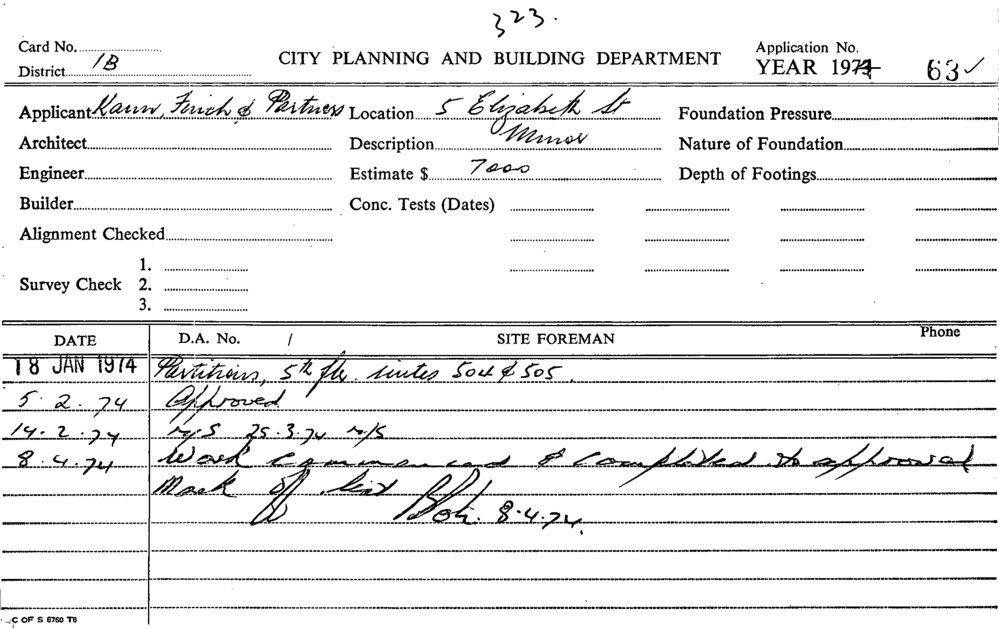 323.
Card No.
CITY PLANNING AND BUILDING DEPARTMENT
Application No.
District 1B
YEAR 1974 63 ✓
Applicant Kann, Finch & Partners Location 5 Elizabeth St Foundation Pressure
Architect Description Minor Nature of Foundation
Engineer Estimate $ 7000 Depth of Footings
Builder Conc. Tests (Dates)
Alignment Checked
1.
Survey Check 2.
3.
DATE D.A. No. / SITE FOREMAN Phone
18 JAN 1974 Partitions, 5th flr. suites 504 & 505.
5.2.74 Approved
14.2.74 N/S 25.3.74 N/S
8.4.74 Work commenced & completed to approval
Mark off list 8.4.74.
C OF S 6760 T6